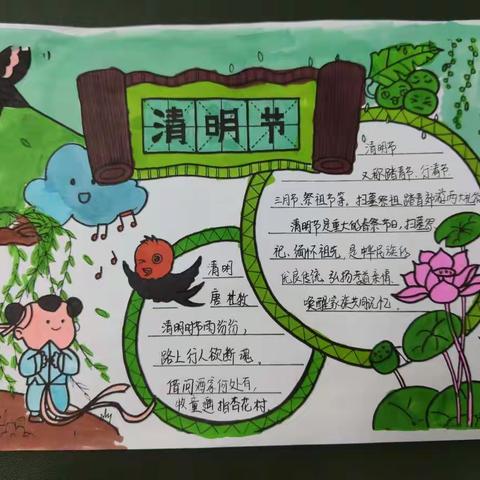 清明节
清明节
又称踏青节、行清节
三月节、祭祖节等，扫墓祭祖、踏青郊游两大礼
清明节是重大的春祭节日，扫墓祭
祀、缅怀祖先，是中华民族的
优良传统，弘扬孝道亲情、
唤醒家族共同记忆。
清明
唐 杜牧
清明时节雨纷纷，
路上行人欲断魂。
借问酒家何处有，
牧童遥指杏花村。